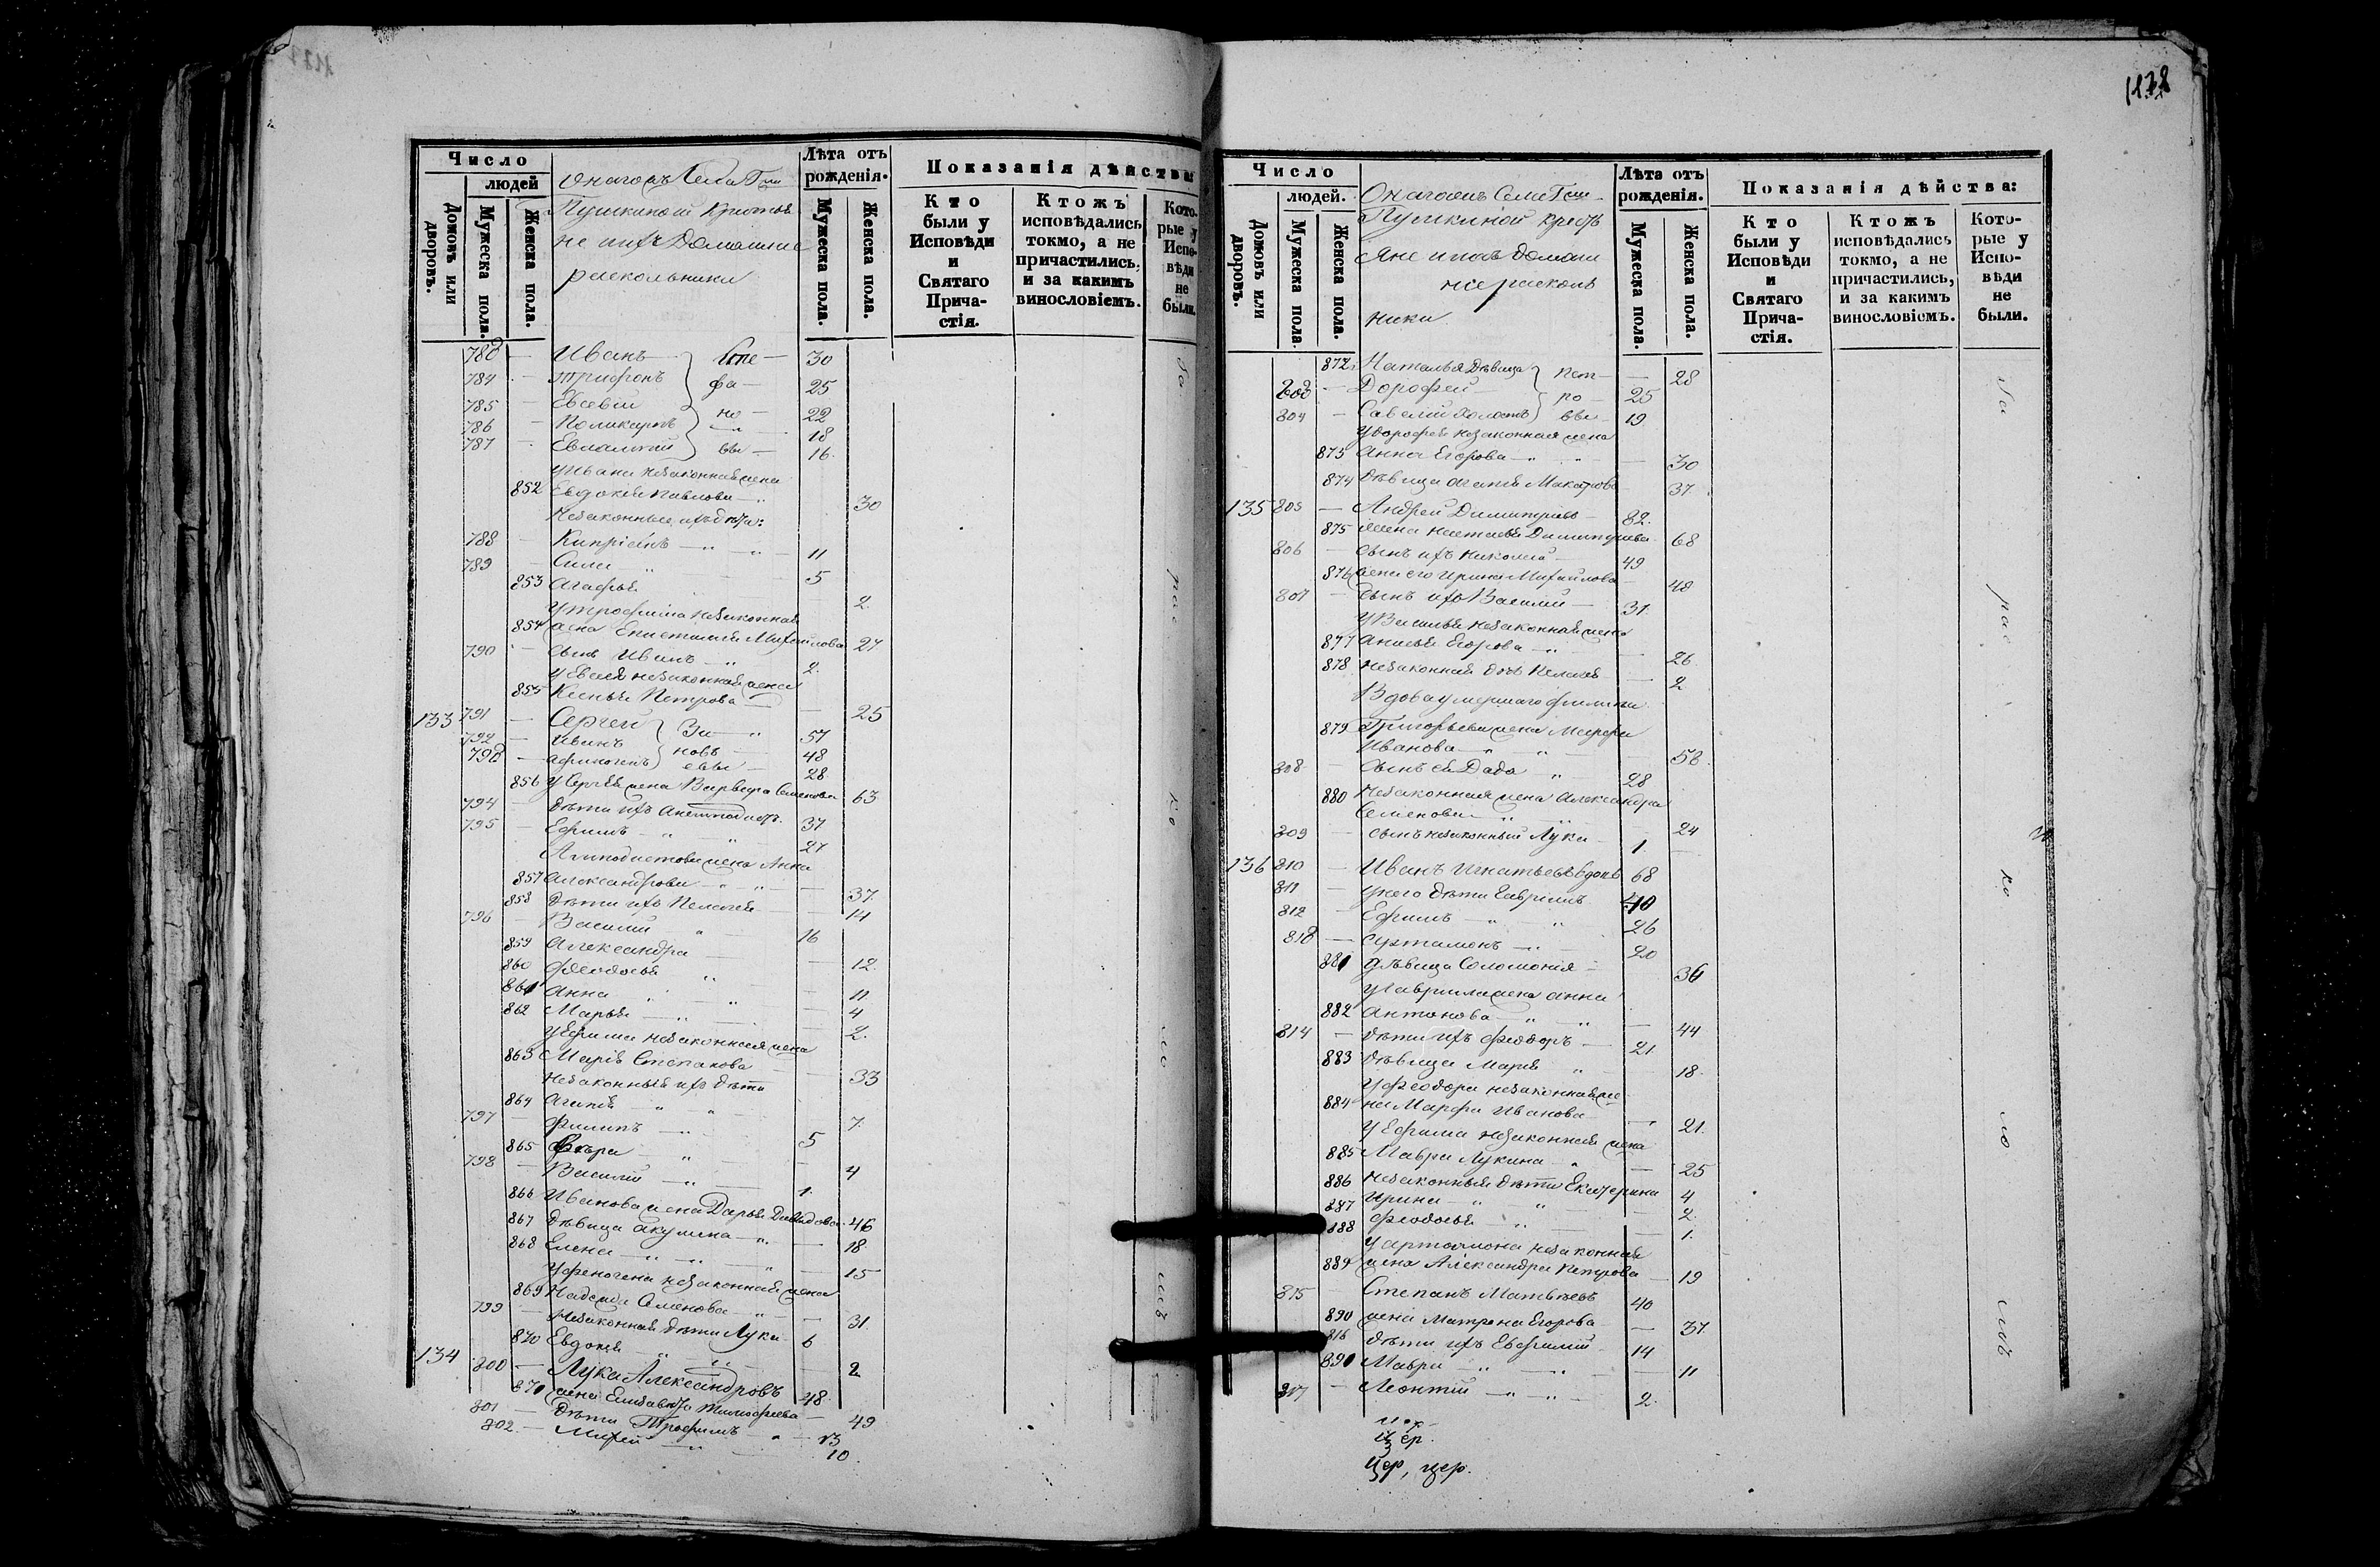 1138
Число
людей
Домовъ или дворовъ.
Мужеска пола.
Женска пола.
Пушкиной Крестья
не ихъ Домашние
раскольники
Лѣта отъ рожденія.
Мужеска пола.
Женска пола.
Показанія дѣйства:
Кто были у Исповѣди и Святаго Причастія.
Ктожъ исповѣдались токмо, а не причастились, и за какимъ винословіемъ.
Которые у Исповѣди не были.
783 — Иванъ — Сте — 30
784 — Трифонъ фа — 25
785 — Евсевій но — 22
786 — Поликарпъ — 18
787 — Евлампій вы — 16
у Ивана незаконная жена
852 Евдокія Павлова — 30
незаконные ихъ дѣти:
788 — Кипріянъ — 11
789 — Сила — 5
853 Агафья 2
у Трофима незаконная
854 жена Епистимія Михайлова 27
790 — сынъ Иванъ 2
у Евсея незаконная жена
855 Ксенья Петрова — 25
133 791 — Сергей Зи 57
792 — Иванъ новь 48
793 — Афиногенъ евы 28
856 у Сергѣя жена Варвара Семенова 63
794 — дѣти ихъ 37
795 — Ефимъ 27
жена Анна
857 Александрова — 37
858 дѣти ихъ Пелагея — 14
796 — Василій 16
859 Александра — 12
860 Феодосья 11
861 Анна 4
862 Марья — 2
у Ефима незаконная жена
863 Марія Степанова — 33
незаконныя ихъ дѣти
864 Агапія 7
797 — Филипъ — 5
865 Вѣра — 4
798 — Василій — 1
866 Иванова жена Дарья Давидова 46
867 дѣвица Акулина — 18
868 Елена — 15
у Феногена незаконная жена
869 Надежда Семенова — 31
799 — незаконныя дѣти Лука 6
870 Евдокія 2
134 800 — Лука Александровъ 48
871 жена Елисавета Тимофеева — 49
801 — дѣти Трофимъ — 13
802 — Михей — 10
Число
людей.
Домовъ или дворовъ.
Мужеска пола.
Женска пола.
Пушкиной кресть
яне ихъ домаш
ніе расколь
ники
Лѣта отъ рожденія.
Мужеска пола.
Женска пола.
Показанія дѣйства:
Кто были у Исповѣди и Святаго Причастія.
Ктожъ исповѣдались токмо, а не причастились, и за какимъ винословіемъ.
Которые у Исповѣди не были.
872 Наталья дѣвица Пет — 28
803 — Дорофей ро — 25
804 — Савелій холостъ вы 19
у Дорофея незаконная жена
873 Анна Егорова — 30
874 дѣвица Агапія Макарова 37
135 805 — Андрей Димитріевъ 82
875 жена Настасья Димитріева 68
806 — сынъ ихъ Николай 49
876 жена его Ирина Михайлова 48
807 — сынъ ихъ Василій — 31
у Василья незаконная жена
877 Анисья Егорова — 26
878 незаконная дочь Пелагея 2
Вдова умершаго Филипа
879 Григорьева жена Марфа
Иванова — 58
808 — сынъ ея Дада 28
880 незаконная жена Александра
Семенова — 24
809 — сынъ незаконный Лука — 1
136 810 — Иванъ Игнатьевъ вдовъ 68
811 — у него дѣти Гаврилъ 40
812 — Ефимъ — 26
813 — Артамонъ — 20
881 дѣвица Соломонія — 36
у Гаврила жена Анна
882 Антонова — 44
814 — дѣти ихъ Феодоръ — 21
883 дѣвица Марія 18
у Феодора незаконная же
884 на Марфа Иванова — 21
у Ефима незаконная жена
885 Мавра Лукина — 25
886 незаконныя дѣти Екатерина 4
887 Ирина — 2
888 Феодосья 1
у Артамона незаконная
889 жена Александра Петрова 19
815 — Степанъ Матвѣевъ 40
890 жена Матрена Егорова — 37
816 дѣти ихъ Евфимій 14
891 Мавра — 11
817 — Леонтій — 2
цер.
цер, цер.